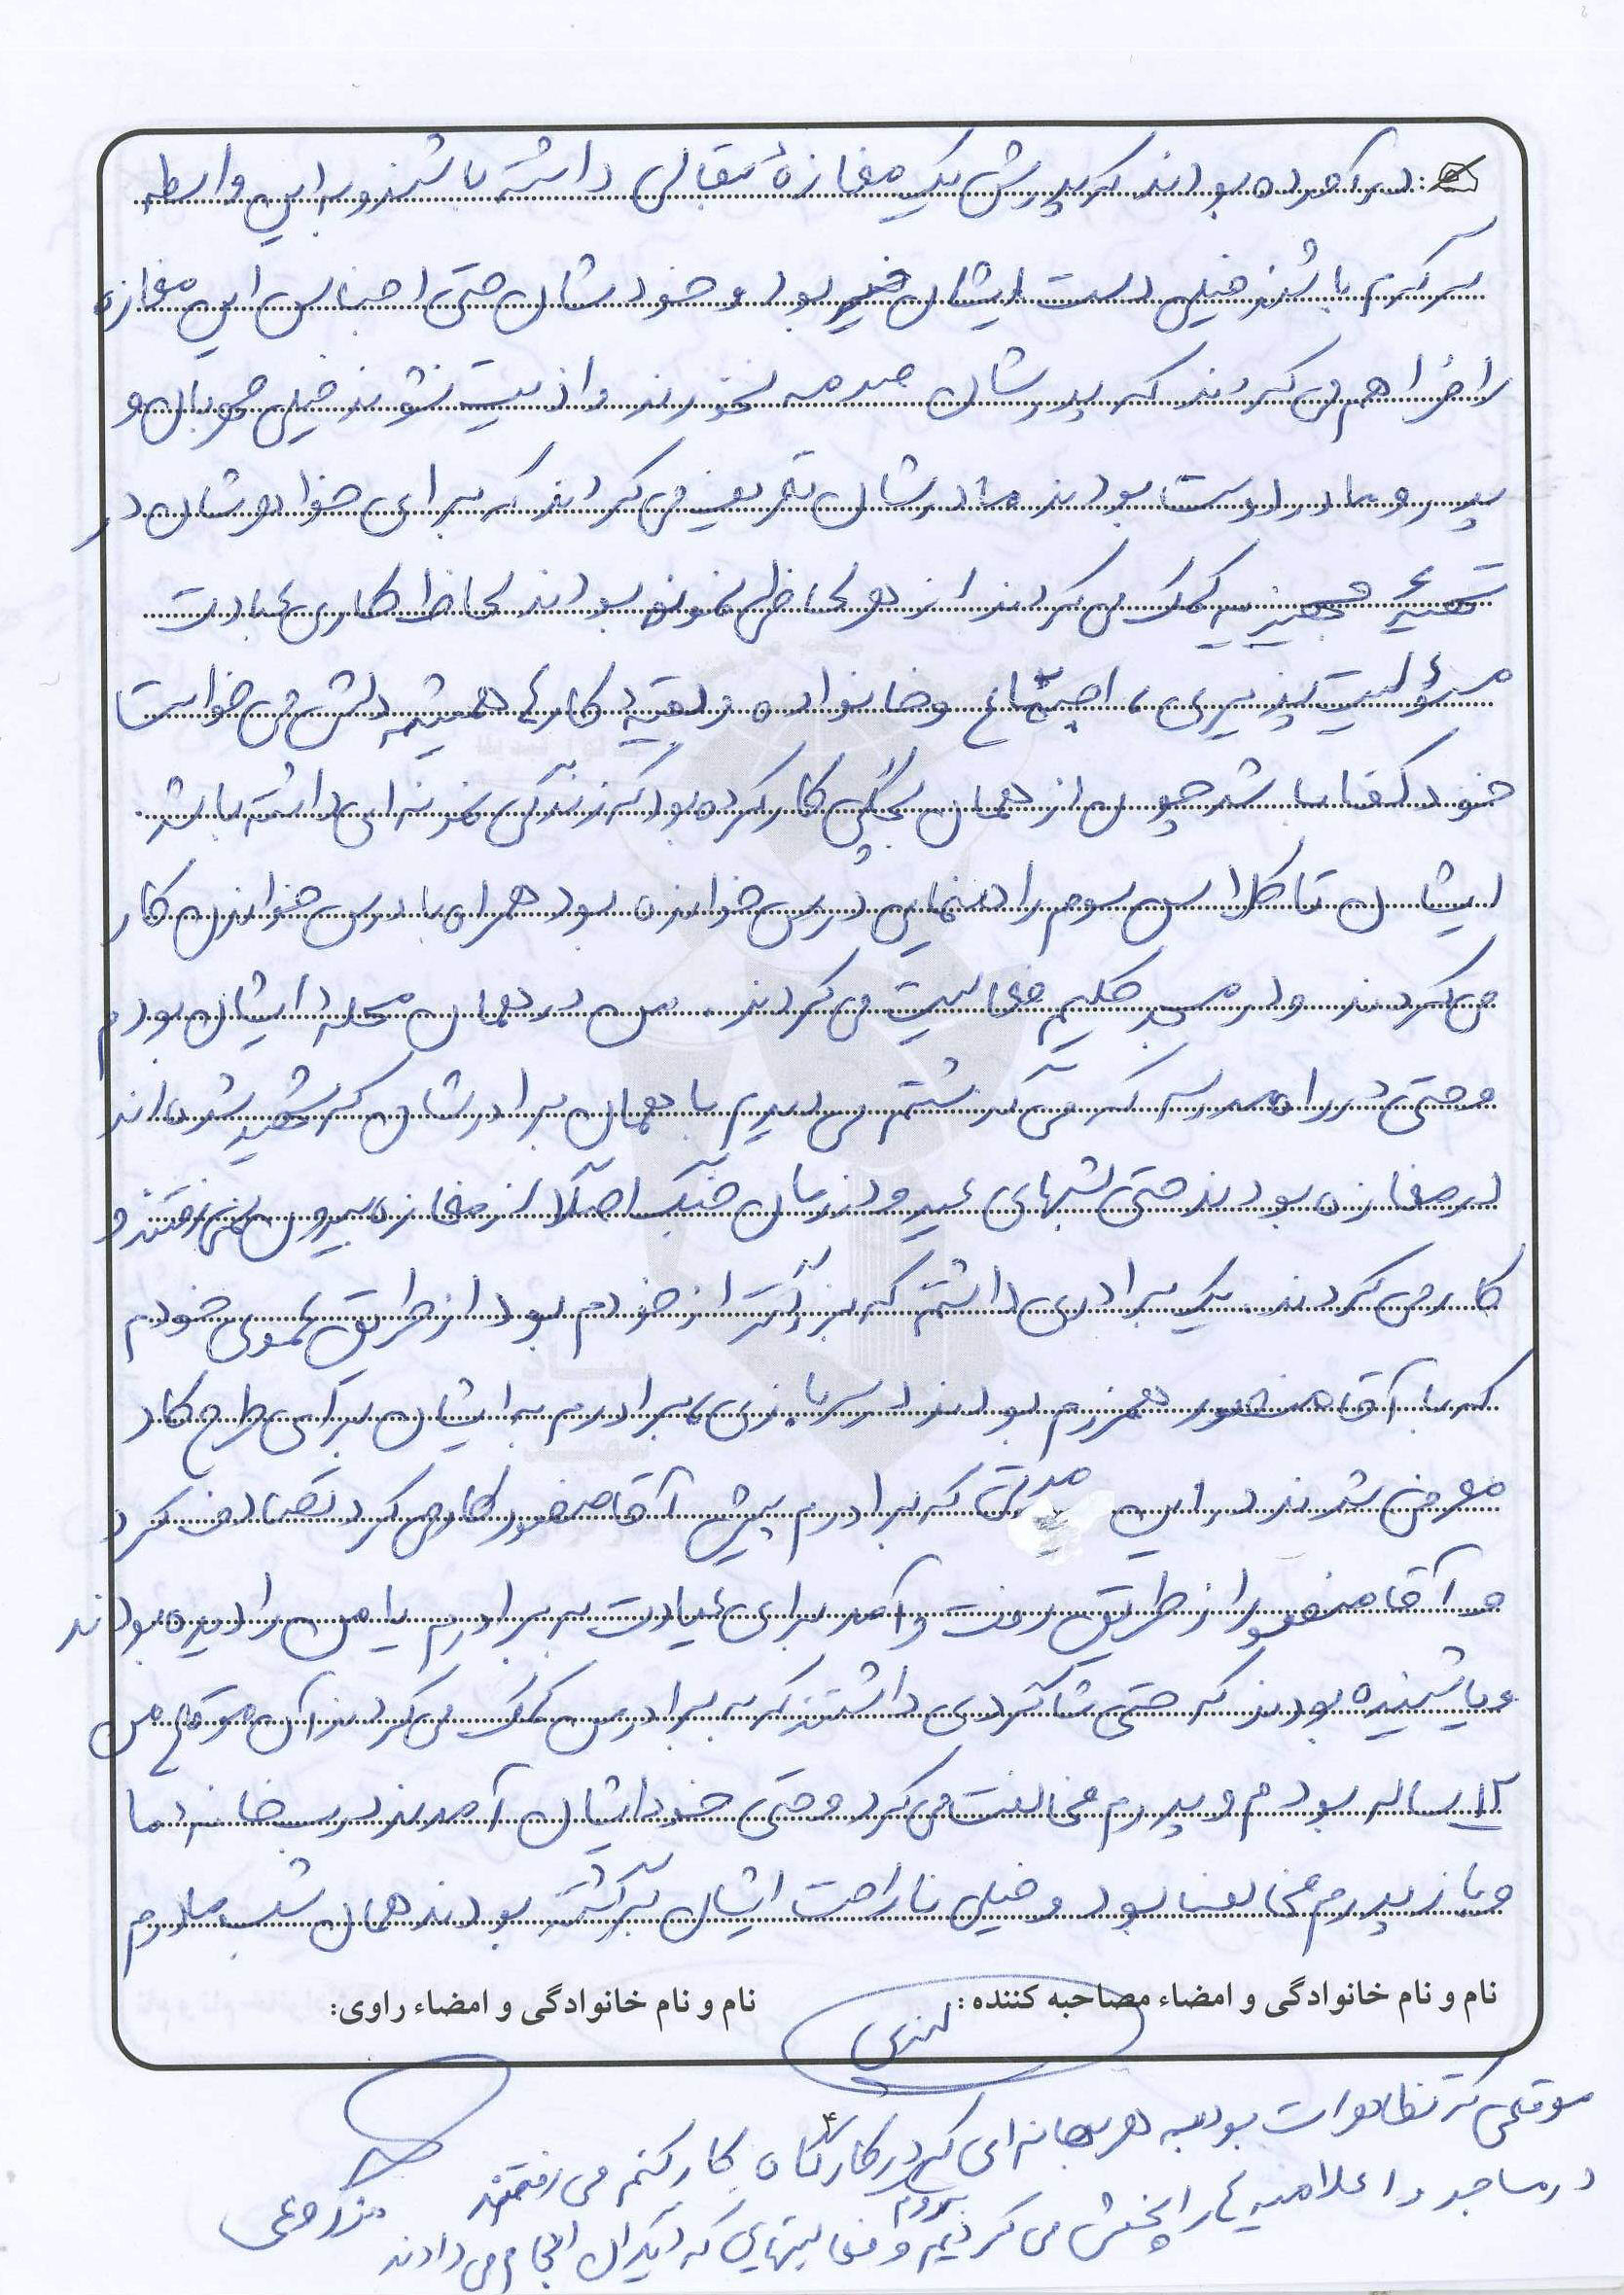 درآورده بودند که پدرش یک مغازهٔ بقالی داشته باشند و به این واسطه
سرگرم باشند خیلی دست ایشان خیر بود و خودشان حتی اجناس این مغازه
را فراهم می کردند که پدرشان صدمه نخورند و اذیت نشوند خیلی مهربان و
پدر و مادر دوست بودند مادرشان تعریف می کردند که برای خواهرشان در
تهیهٔ جهیزیه کمک می کردند از هر لحاظی نمونه بودند لحاظ کاری عبادت
مسؤلیت پذیری، اجتماع و خانواده و بقیهٔ کارها همیشه دلش می خواست
خودکفا باشد چون از همان بچگی کار کرده بود که زندگی نمونه ای داشته باشد.
ایشان تا کلاس سوم راهنمایی درس خوانده بود همراه با درس خواندن کار
می کردند و در مسجد حکیم فعالیت می کردند. من در همان محله ایشان بودم
و حتی در راه مدرسه که می گذشتم می دیدم با همان برادرشان که شهید شده اند
در مغازه بودند حتی شبهای عید و در زمان جنگ اصلاً از مغازه بیرون نمی رفتند و
کار می کردند. یک برادری داشتم که بزرگتر از خودم بود از طریق عموی خودم
که با آقا منصور همرزم بودند در سربازی، برادرم به ایشان برای طرح کاد
معرفی شدند در این مدتی که برادرم پیش آقا منصور کار می کرد تصادف کرد
و آقا منصور از طریق رفت و آمد برای عیادت به برادرم یا من را دیده بودند
و یا شنیده بودند که حتی شاگردی داشتند که به برادرش کمک می کردند آن موقع من
۱۲ ساله بودم و پدرم مخالفت می کرد و حتی خود ایشان آمدند درب خانه ما
و باز پدرم مخالف بود و خیلی ناراحت ایشان برگشته بودند همان شب مادرم
نام و نام خانوادگی و امضاء مصاحبه کننده:
نام و نام خانوادگی و امضاء راوی:
موقعی که تظاهرات بود به هر بهانه ای که در کارگاه کار کنم می رفتند
بروم
در مساجد و اعلامیه ها را پخش می کردیم و فعالیتهایی که دیگران انجام می دادند